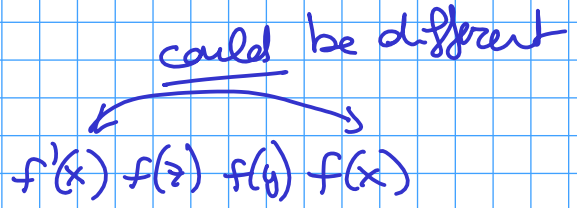 could be different
f'(x) f(z) f(y) f(x)